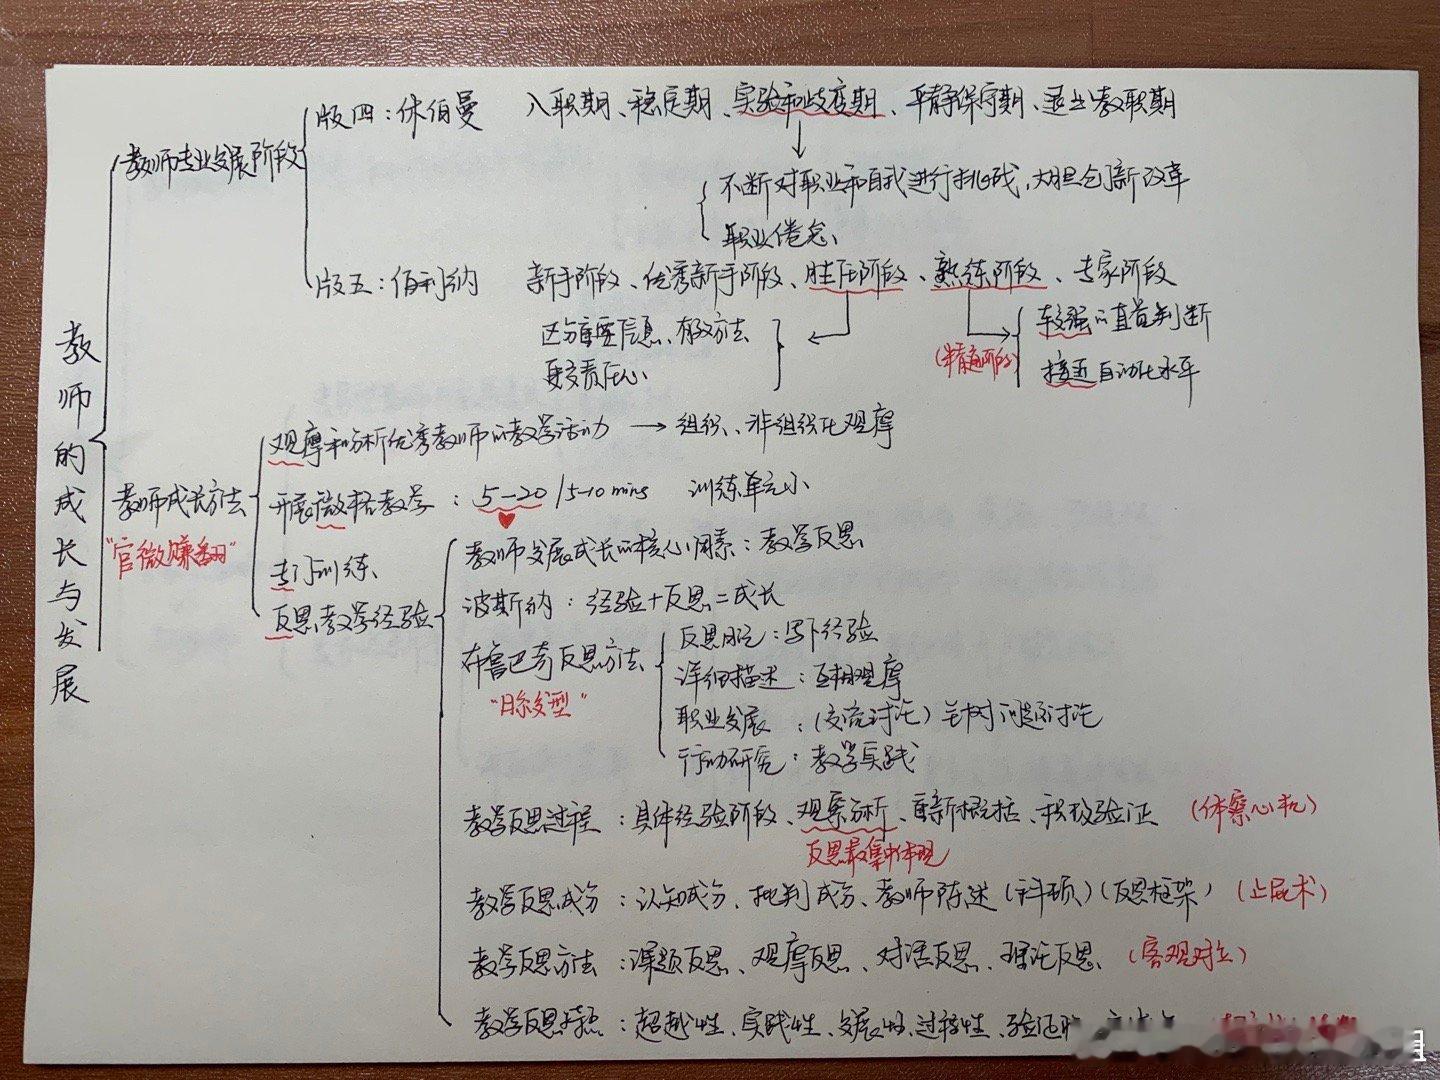 教师的成长与发展
教师专业发展阶段
版四：休伯曼 入职期、稳定期、实验和歧变期、平静保守期、退出教职期
不断对职业和自我进行挑战，大胆创新改革
职业倦怠
版五：伯利纳 新手阶段、优秀新手阶段、胜任阶段、熟练阶段、专家阶段
区分重要信息、有效方法
更有责任心
较强的直首判断
接近自动化水平
教师成长方法
"官微赚翻"
观摩和分析优秀教师的教学活动 → 组织、非组织化观摩
开展微格教学：5-20 / 5-10 mins 训练单元小
专门训练
反思教学经验
教师发展成长的核心因素：教学反思
波斯纳：经验+反思=成长
布鲁巴奇反思方法
反思日记：写下经验
"日尔发型"
详细描述：互相观摩
职业发展：(交流讨论) 关于问题讨论
行动研究：教学实践
教学反思过程：具体经验阶段、观察分析、重新概括、积极验证 (体察心机)
反思最集中体现
教学反思成分：认知成分、批判成分、教师陈述 (科顿) (反思框架)
教学反思方法：课题反思、观摩反思、对话反思、理论反思 (客观对立)
教学反思特点：超越性、实践性、发展性、过程性、验证性